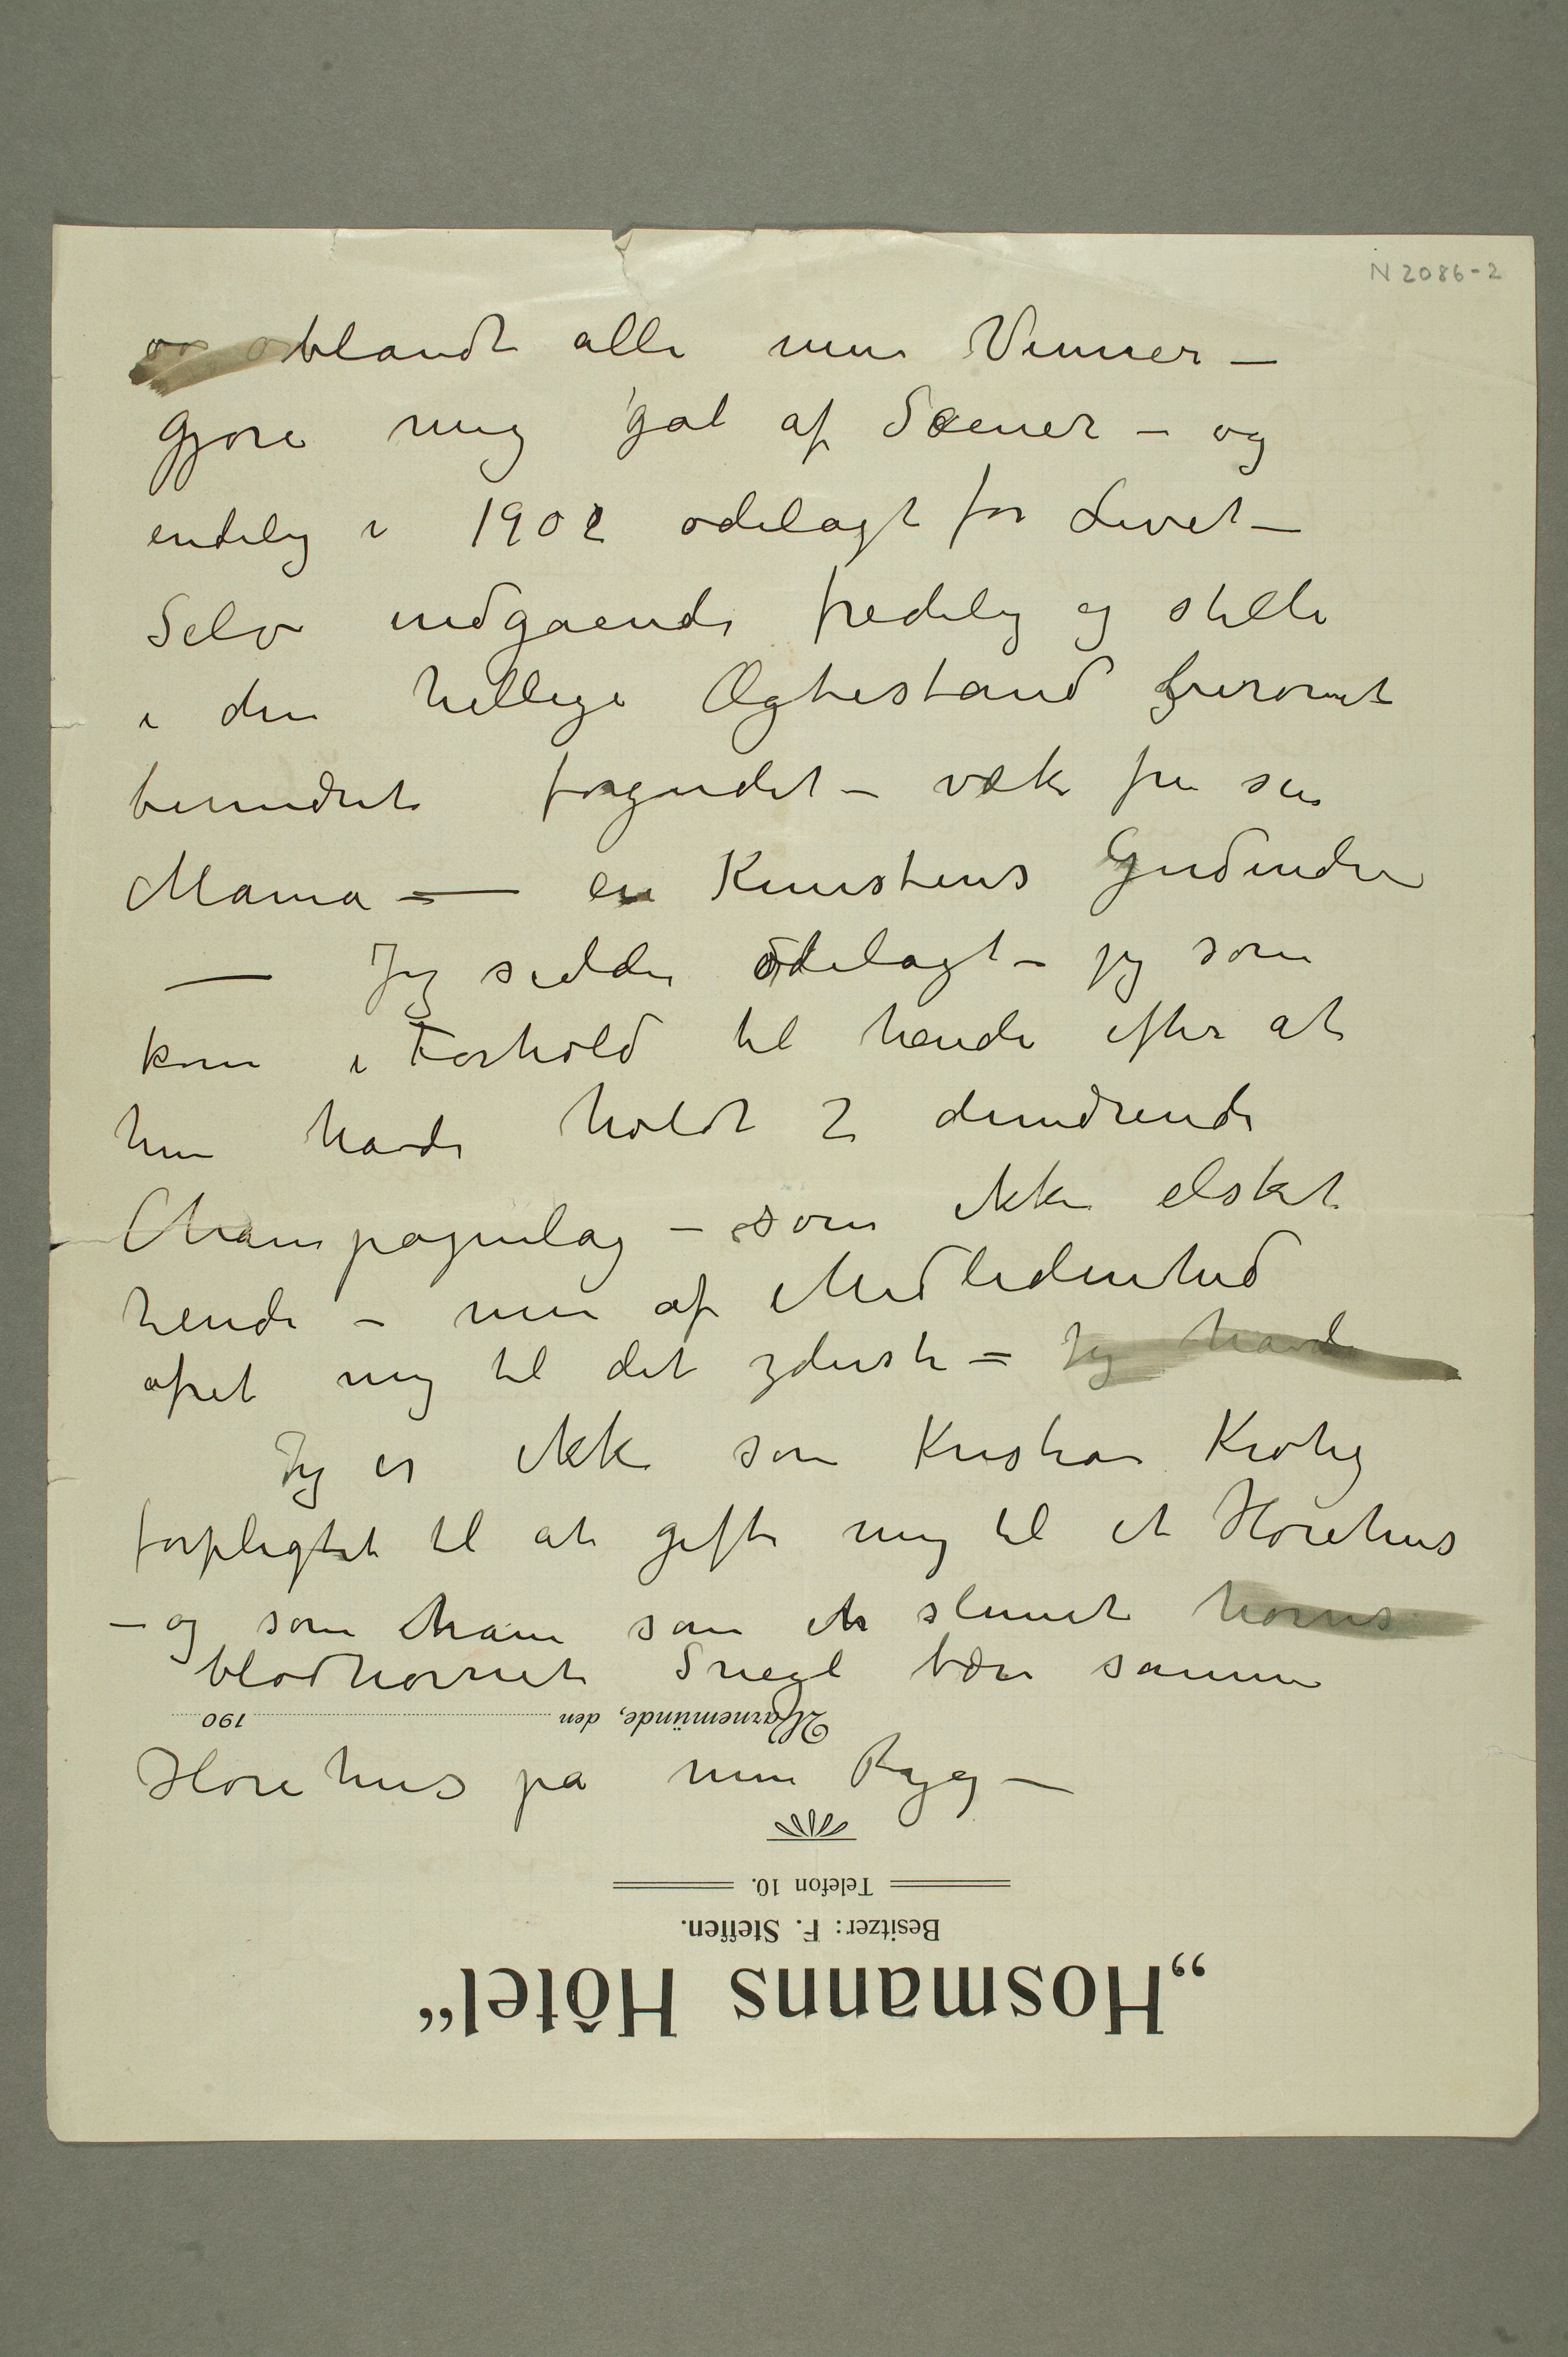 N 2086-2
blandt alle mine Venner –
gjøre mig gal af Scener – og
endelig i 1902 ødelagt for Livet –
Selv indgående fredelig og stille
i den hellige Ægtestand berømt
beundret forgudet – væk fra sin
Mama – – en Kunstens Gudinde
– Jeg sidder ødelagt – jeg som
kom i Forhold til hende efter at
hun havde holdt 2 dundrende
Champagnelag – som ikke elsket
hende – men af Medlidenhed
ofret mig til det yderste – Jeg havde
Jeg er ikke som Kristian Krohg
forpligtet til at gifte mig til et Horehus
– og som ham som en slimet horns
blødhornet Snegl bære samme
Warnemünde, den 190
Horehus på min Ryg –
Telefon 10.
Besitzer: F. Steffen.
„Hosmanns Hôtel“